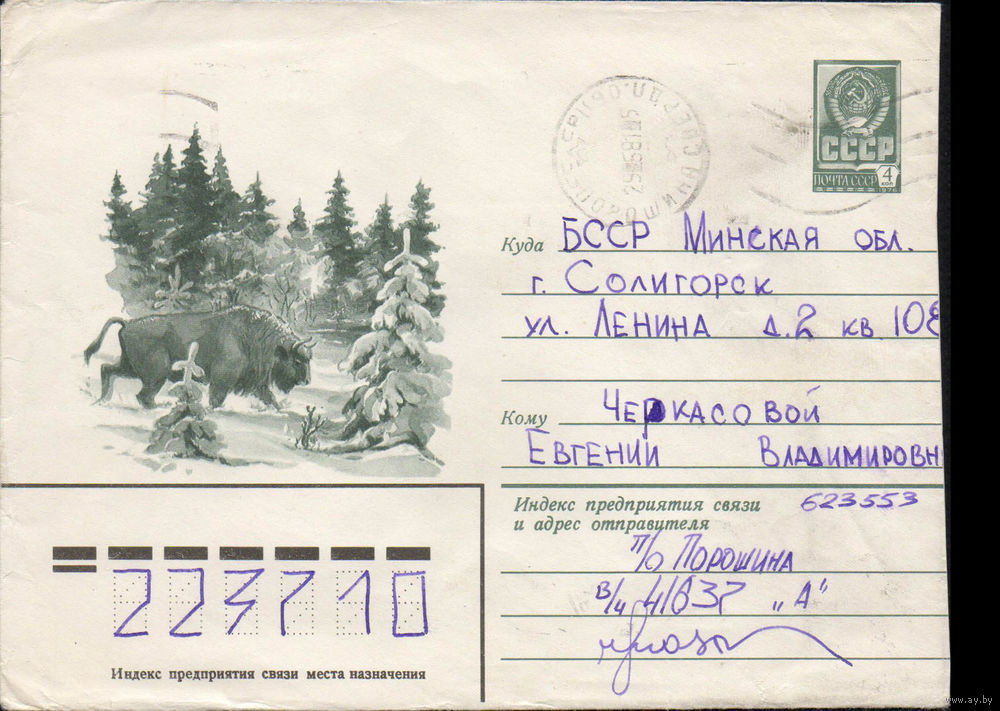 СССР
ПОЧТА СССР 4 КОП
1976
Куда БССР Минская обл.
г. Солигорск
ул. Ленина д. 2 кв. 108
Кому Черкасовой
Евгении Владимировн
Индекс предприятия связи
и адрес отправителя
623553
п/о Порошина
в/ч 41637 „А"
223710
Индекс предприятия связи места назначения
www.ay.by